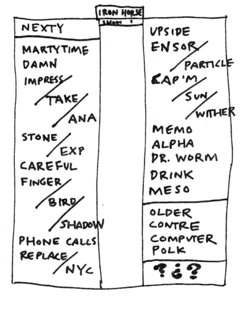 IRON HORSE
SHOW:
NEXTY
MARTYTIME
DAMN
IMPRESS
TAKE
ANA
STONE
EXP
CAREFUL
FINGER
BIRD
SHADOW
PHONE CALLS
REPLACE
NYC
UPSIDE
ENSOR
PARTICLE
CAP'M
SUN
WITHER
MEMO
ALPHA
DR. WORM
DRINK
MESO
OLDER
CONTRE
COMPUTER
POLK
? ¿ ?